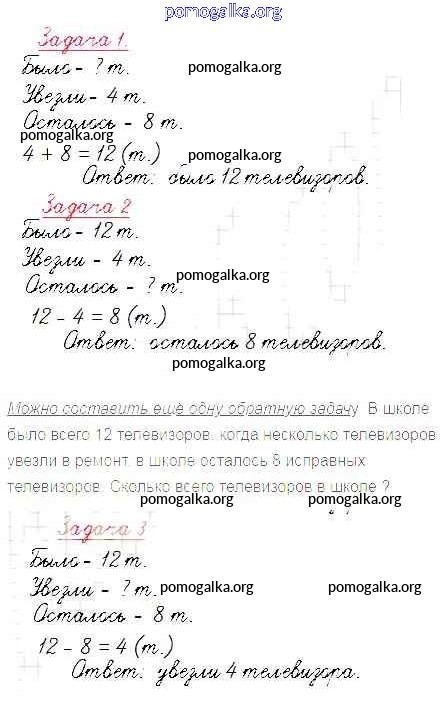 pomogalka.org
Задача 1.
Было - ? т. pomogalka.org
Увезли - 4 т.
Осталось - 8 т.
pomogalka.org
4 + 8 = 12 (т.) pomogalka.org
Ответ: было 12 телевизоров.
Задача 2
Было - 12 т.
Увезли - 4 т.
pomogalka.org
Осталось - ? т.
12 - 4 = 8 (т.)
Ответ: осталось 8 телевизоров.
pomogalka.org
Можно составить ещё одну обратную задачу. В школе
было всего 12 телевизоров. когда несколько телевизоров
увезли в ремонт, в школе осталось 8 исправных
телевизоров. Сколько всего телевизоров в школе ?
pomogalka.org pomogalka.org
Задача 3
Было - 12 т.
Увезли - ? т. pomogalka.org pomogalka.org
Осталось - 8 т.
12 - 8 = 4 (т.)
Ответ: увезли 4 телевизора.